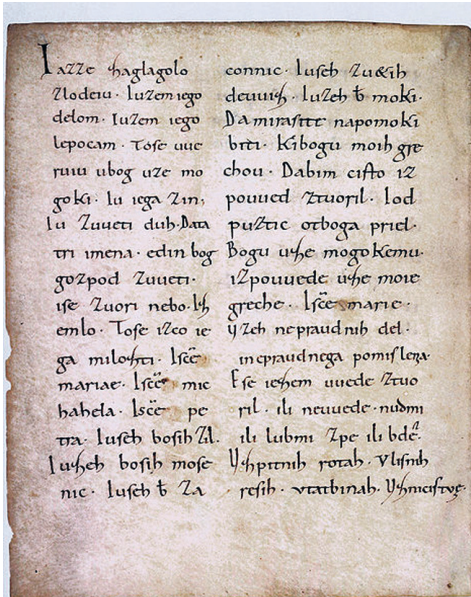 Iazze zaglagolo
zlodeiu. Iuzem iego
delom. Iuzem iego
lepocam. Tose uue
ruiu ubog uze mo
goki. Iu iega zin.
Iu zuueti duh. Data
tri imena. edin bog
gozpod zuueti.
ise zuori nebo. Iz
emlo. Tose izco ie
ga milozti. Isc̄ē
mariae. Isc̄ē mic
hahela. Isc̄ē pe
tra. Iuseh bosih zil.
Iuzeh bosih mose
nic. Iuseh b̄ za
connic. Iuseh zu&ih
deuuiz. Iuzeh b̄ moki.
Da mirastte napomoki
biti. Kibogu moih gre
chou. Dabim cisto iz
pouued ztuoril. Iod
puztic otboga priel.
Bogu uze mogokemu.
izpouuede uze moie
greche. Isc̄ē marie.
uzeh nepraudnih del.
inepraudnega pomislena.
Ese iezem uuede ztuo
ril. ili neuuede. nudmi
ili lubmi zpe ili bdē.
Uzpitnih rotah. Vlisnih
resih. vtatbinah. Uznicistuę.